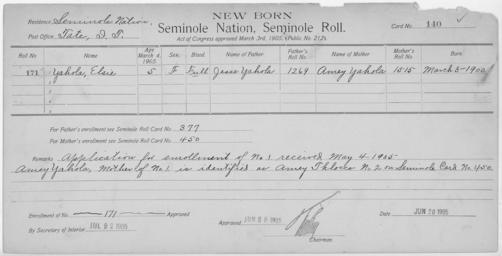 NEW BORN
Residence Seminole Nation.
Seminole Nation, Seminole Roll.
Card No. 140
Post Office. Tate, I. T.
Act of Congress approved March 3rd, 1905. (Public No. 212).
Roll No. Name Age March 4, 1905. Sex. Blood. Name of Father Father's Roll No. Name of Mother Mother's Roll No. Born
171 Yahola, Elsie 5 F Full Jesse Yahola 1269 Amey Yahola 1515 March 5-1900
For Father's enrollment see Seminole Roll Card No. 377
For Mother's enrollment see Seminole Roll Card No. 450
Remarks Application for enrollment of No. 1 received May 4-1905
Amey Yahola, Mother of No. 1 is identified as Amey Thlocco No. 2 on Seminole Card No. 450
Enrollment of No. 171 Approved
By Secretary of Interior JUL 22 1905
Approved JUN 1905
Chairman
Date JUN 20 1905